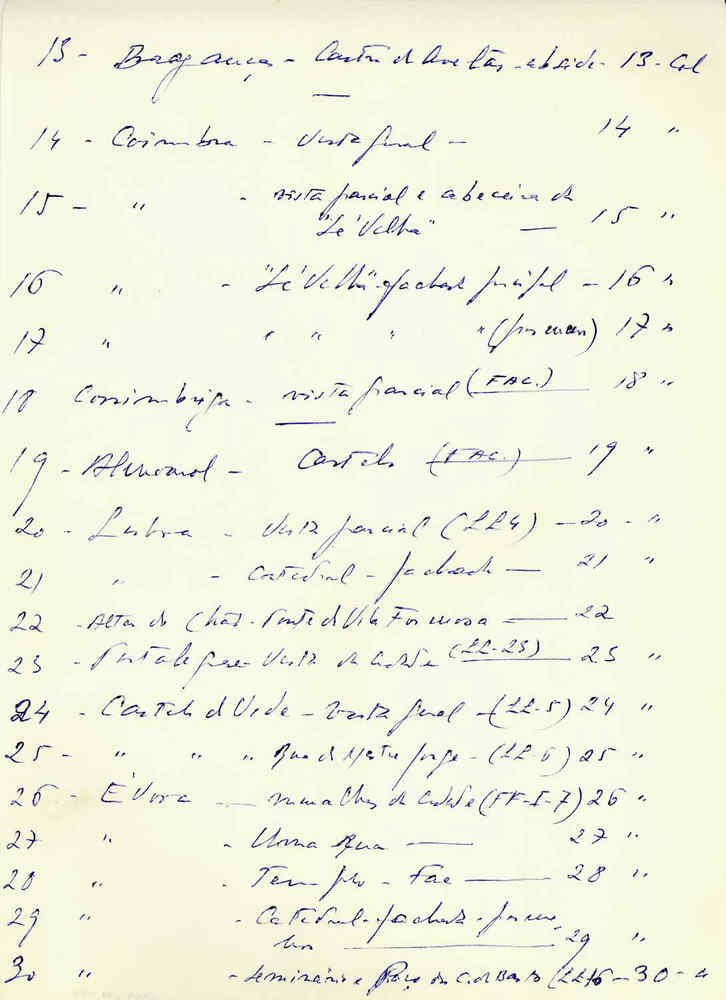 13 - Bragança - Castro d'Avelãs - abside - 13 - Col
14 - Coimbra - Vista geral - 14 "
15 - " - vista parcial e cabeceira da
"Sé Velha" — 15 "
16 " - "Sé Velha" - fachada principal - 16 "
17 " " " " " (pormenor) 17 "
18 Conimbriga - vista parcial (FAC.) 18 "
19 - Almourol - Castelo (FAC.) 19 "
20 - Lisboa - Vista parcial (LL4) - 20 - "
21 " - Catedral - fachada — 21 "
22 - Alter do Chão - Ponte d Vila Formosa — 22
23 - Portalegre - Vista da cidade (LL-23) 23 "
24 - Castelo d Vide - vista geral - (LL-5) 24 "
25 - " " " Rua d Mestre Jorge - (LL-6) 25 "
26 - Évora — muralhas da cidade (FF-I-7) 26 "
27 " - Uma Rua — 27 "
28 " - Templo - Fac — 28 "
29 " - Catedral - fachada - porme
nor — 29 "
30 " - Seminário e Paço dos C. de Basto (LL16 - 30 - "